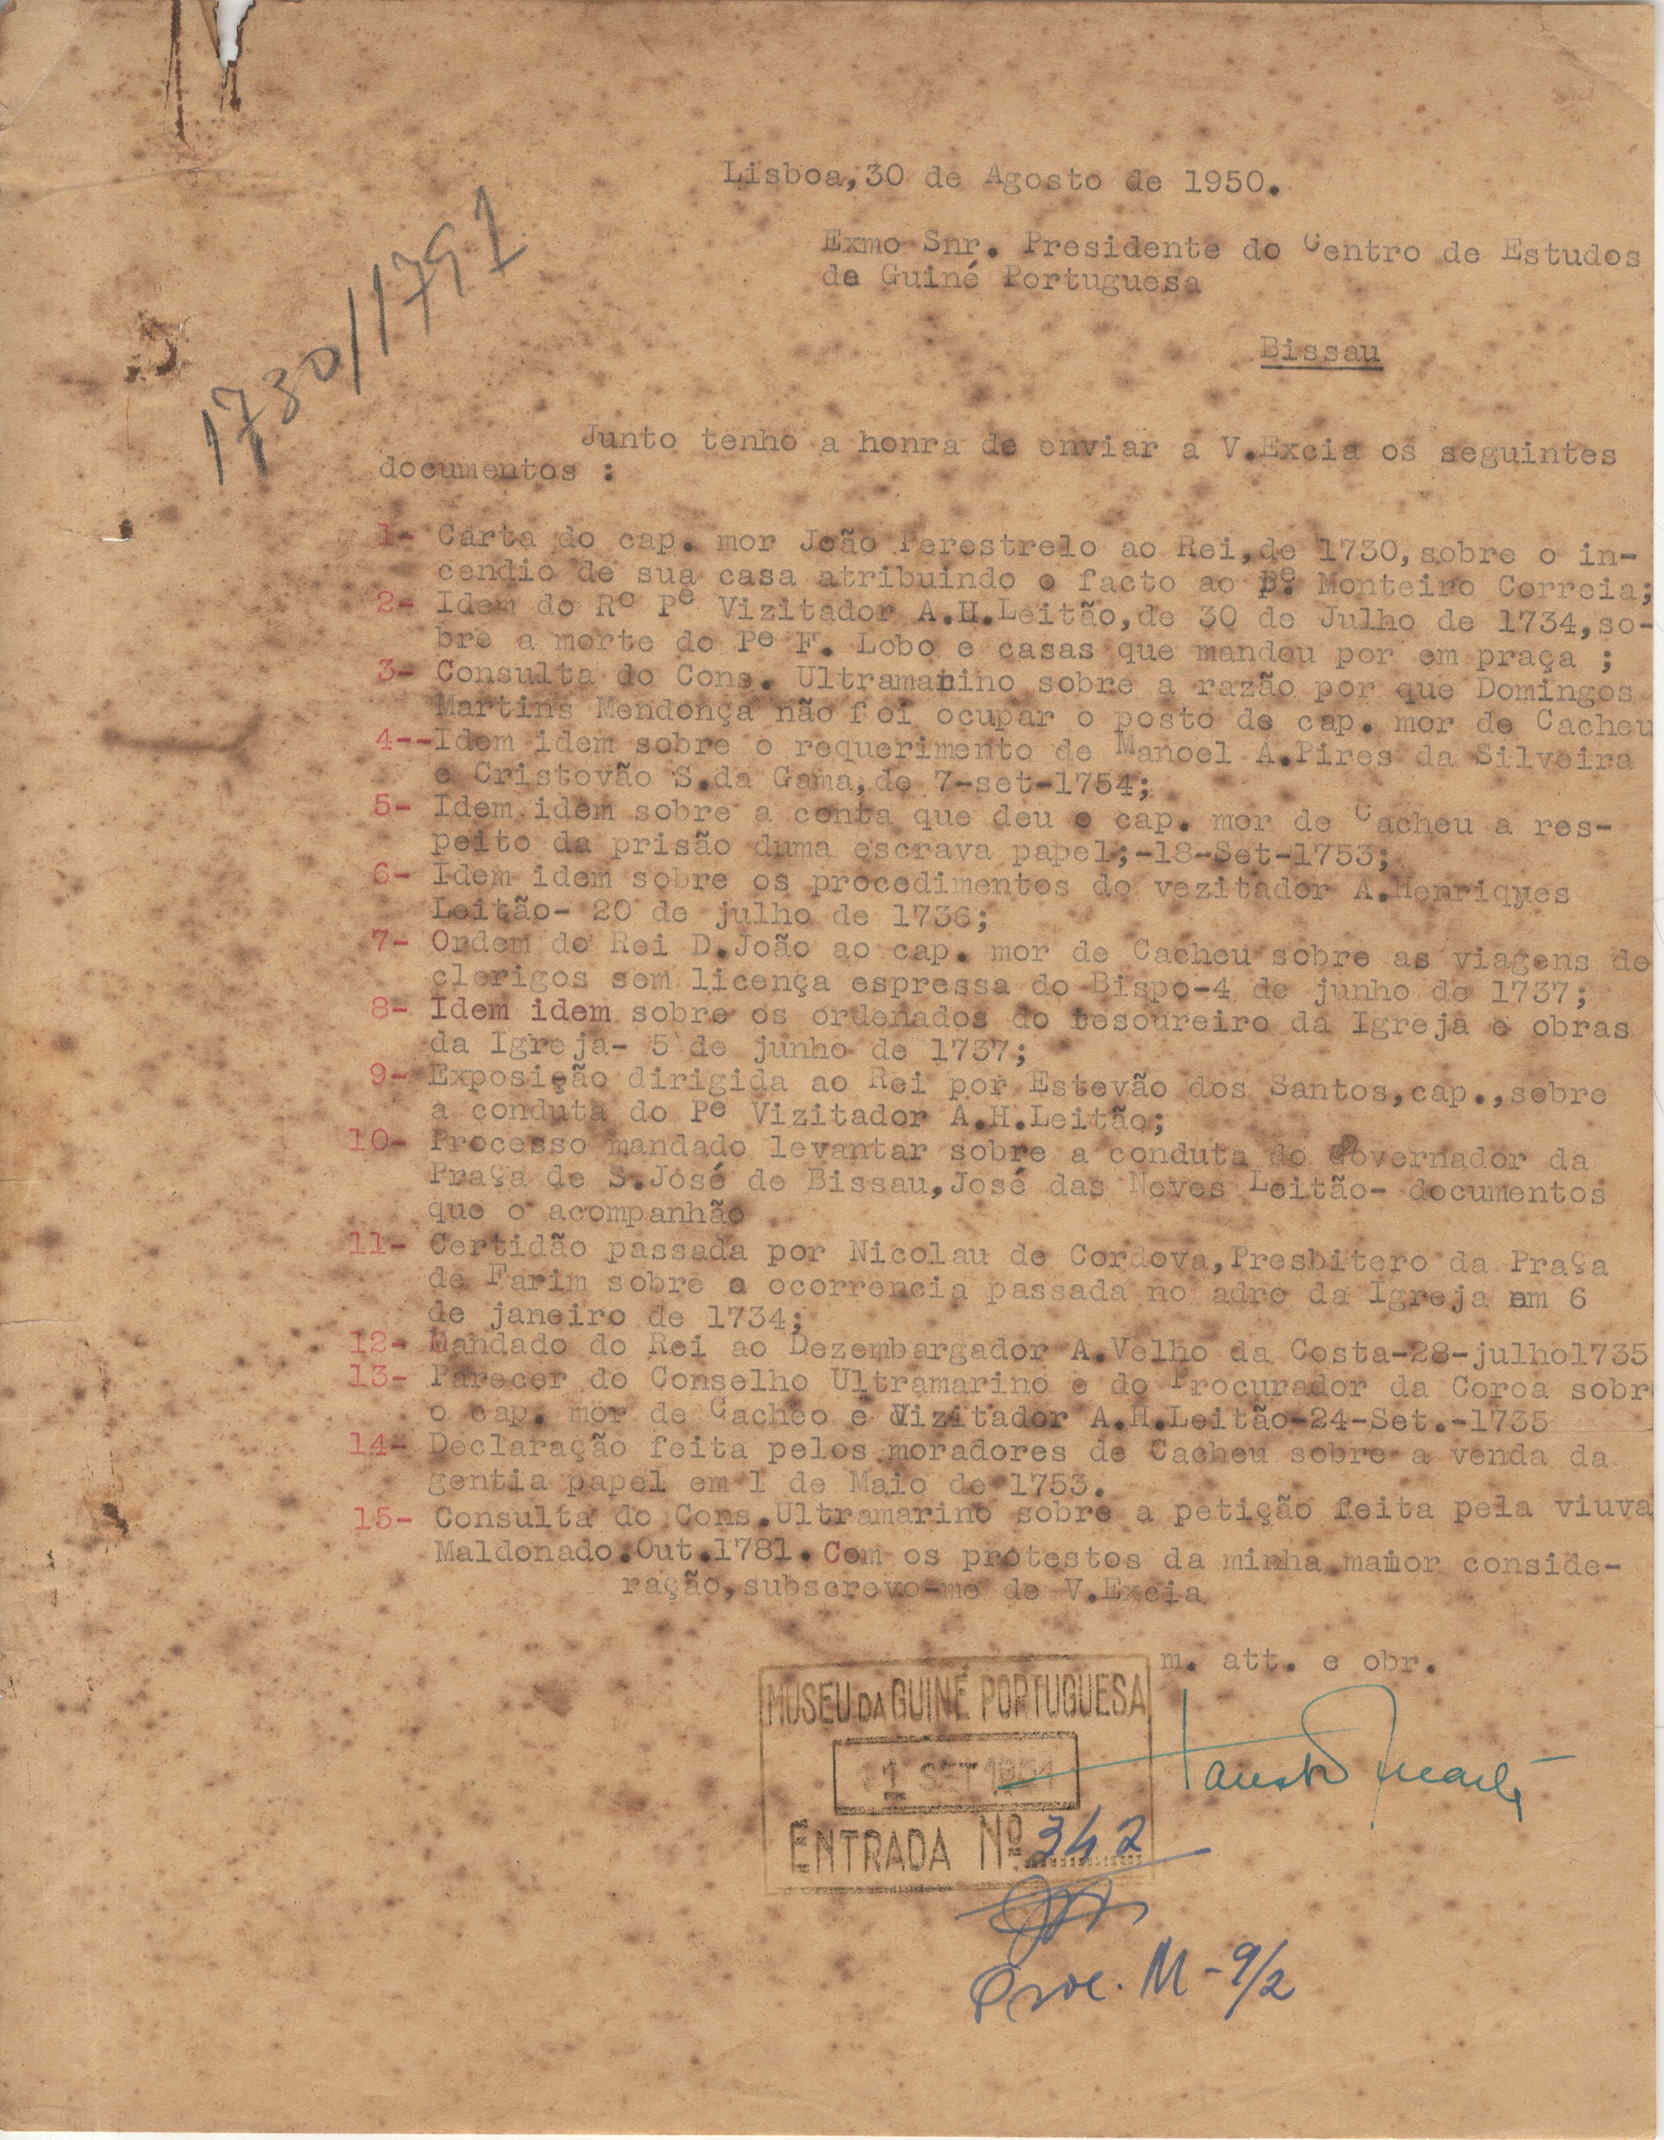 Lisboa,30 de Agosto de 1950.
Exmo Snr. Presidente do Centro de Estudos
da Guiné Portuguesa
Bissau
1730/1791
Junto tenho a honra de enviar a V.Excia os seguintes
documentos :
1- Carta do cap. mor João Perestrelo ao Rei,de 1730,sobre o in-
cendio de sua casa atribuindo o facto ao Bº. Monteiro Correia;
2- Idem do Rº Pº Vizitador A.H.Leitão,de 30 de Julho de 1734,so-
bre a morte do Pº F. Lobo e casas que mandou por em praça ;
3- Consulta do Cons. Ultramanino sobre a razão por que Domingos
Martins Mendonça não foi ocupar o posto de cap. mor de Cacheu
4--Idem idem sobre o requerimento de Manoel A.Pires da Silveira
e Cristovão S.da Gama,de 7-set-1754;
5- Idem idem sobre a conta que deu o cap. mor de Cacheu a res-
peito da prisão duma escrava papel;-18-Set-1753;
6- Idem idem sobre os procedimentos do vezitador A.Henriques
Leitão- 20 de julho de 1736;
7- Ordem do Rei D.João ao cap. mor de Cacheu sobre as viagens de
clerigos sem licença espressa do Bispo-4 de junho de 1737;
8- Idem idem sobre os ordenados do tesoureiro da Igreja e obras
da Igreja- 5 de junho de 1737;
9- Exposição dirigida ao Rei por Estevão dos Santos,cap.,sobre
a conduta do Pº Vizitador A.H.Leitão;
10- Processo mandado levantar sobre a conduta do Governador da
Praça de S.José de Bissau,José das Neves Leitão- documentos
que o acompanhão
11- Certidão passada por Nicolau de Cordova,Presbitero da Praça
de Farim sobre a ocorrencia passada no adro da Igreja em 6
de janeiro de 1734;
12- Mandado do Rei ao Dezembargador A.Velho da Costa-28-julho1735
13- Parecer do Conselho Ultramarino e do Procurador da Coroa sobr
o cap. mor de Cacheo e Vizitador A.H.Leitão-24-Set.-1735
14- Declaração feita pelos moradores de Cacheu sobre a venda da
gentia papel em 1 de Maio de 1753.
15- Consulta do Cons.Ultramarino sobre a petição feita pela viuva
Maldonado.Out.1781. Com os protestos da minha maior conside-
ração,subscrevo-me de V.Excia
m. att. e obr.
MUSEU DA GUINÉ PORTUGUESA
1 SET 1951
ENTRADA Nº 342
Proc. M-9/2